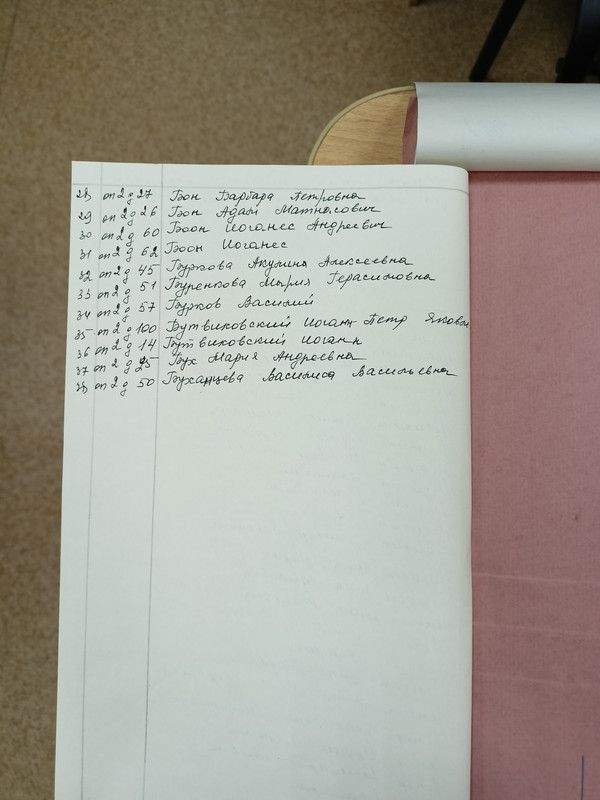 28 оп 2 д 27 Бон Варвара Петровна
29 оп 2 д 26 Бон Адам Матнасович
30 оп 2 д 60 Боон Иоганес Андреевич
31 оп 2 д 62 Боон Иоганес
32 оп 2 д 45 Буркова Акулина Алексеевна
33 оп 2 д 51 Буренкова Мария Герасимовна
34 оп 2 д 57 Бурков Василий
35 оп 2 д 100 Бутвиковский Иоганн Петр Яковл
36 оп 2 д 14 Бутвиковский Иоганн
37 оп 2 д 25 Бух Мария Андреевна
38 оп 2 д 50 Буханцева Василиса Васильевна